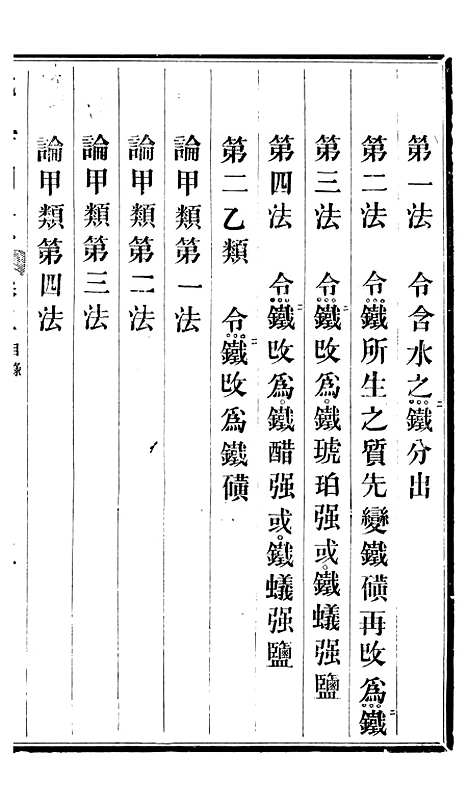 第一法　令含水之鐵二分出
第二法　令鐵二所生之質先變鐵磺再改爲鐵二
第三法　令鐵二改爲鐵琥珀强或鐵蟻强鹽
第四法　令鐵二改爲鐵醋强或鐵蟻强鹽
第二乙類　令鐵二改爲鐵磺
論甲類第一法
論甲類第二法
論甲類第三法
論甲類第四法
目錄